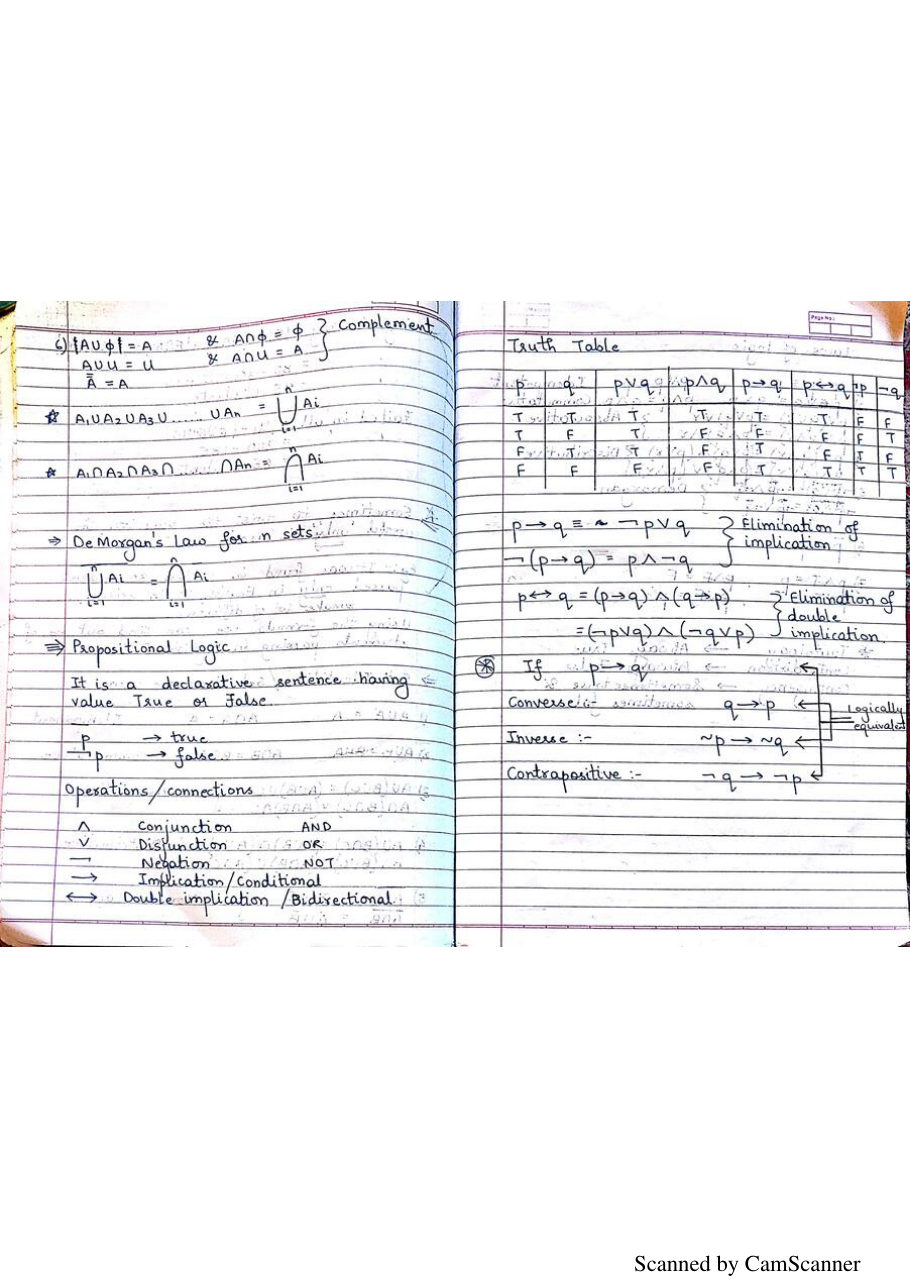 6) |A∪ϕ| = A & A∩ϕ = ϕ } Complement
A∪U = U & A∩U = A
A̿ = A
☆ A₁∪A₂∪A₃∪...... ∪An = n⋃i=1 Ai
☆ A₁∩A₂∩A₃∩...... ∩An = n⋂i=1 Ai
⇒ De Morgan's Law for n sets
n⋃i=1 Ai = n⋂i=1 Ai
⇒ Propositional Logic
It is a declarative sentence having
value True or False.
p → true
¬p → false
Operations/connections
∧ Conjunction AND
∨ Disjunction OR
¬ Negation NOT
→ Implication/Conditional
↔ Double implication/Bidirectional
Page No.:
Truth Table
p q p∨q p∧q p→q p↔q ¬p ¬q
T T T T T T F F
T F T F F F F T
F T T F T F T F
F F F F T T T T
p→q ≡ ~ ¬p∨q } Elimination of
implication
¬(p→q) = p∧¬q
p↔q = (p→q) ∧ (q→p) } Elimination of
double
= (¬p∨q) ∧ (¬q∨p) implication.
※ If p→q
Converse :- q→p
Logically
equivalent
Inverse :- ~p→~q
Contrapositive :- ¬q→¬p
Scanned by CamScanner